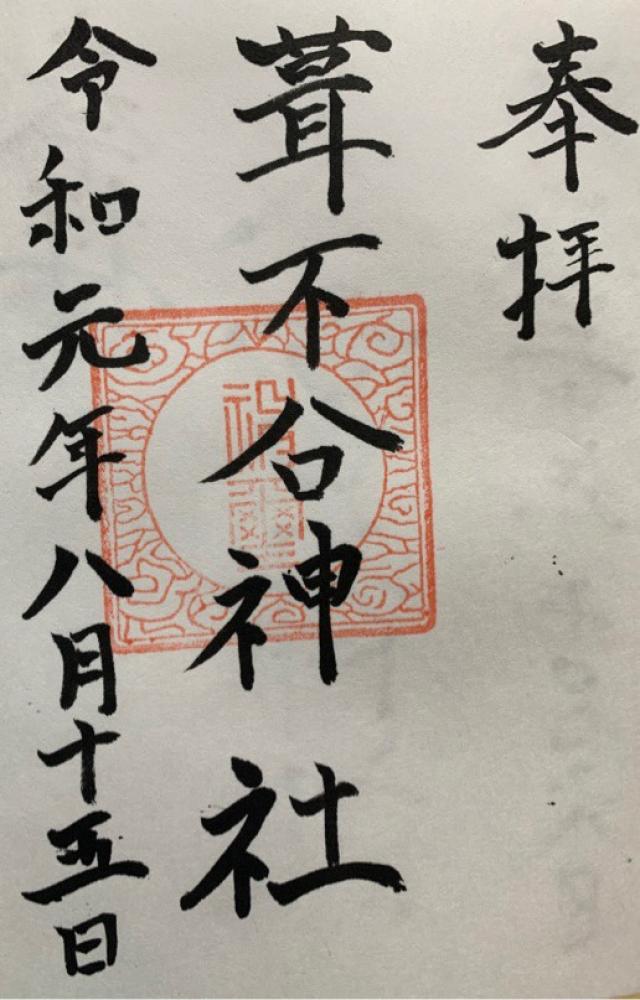 奉拝
葺不合神社
令和元年八月十五日